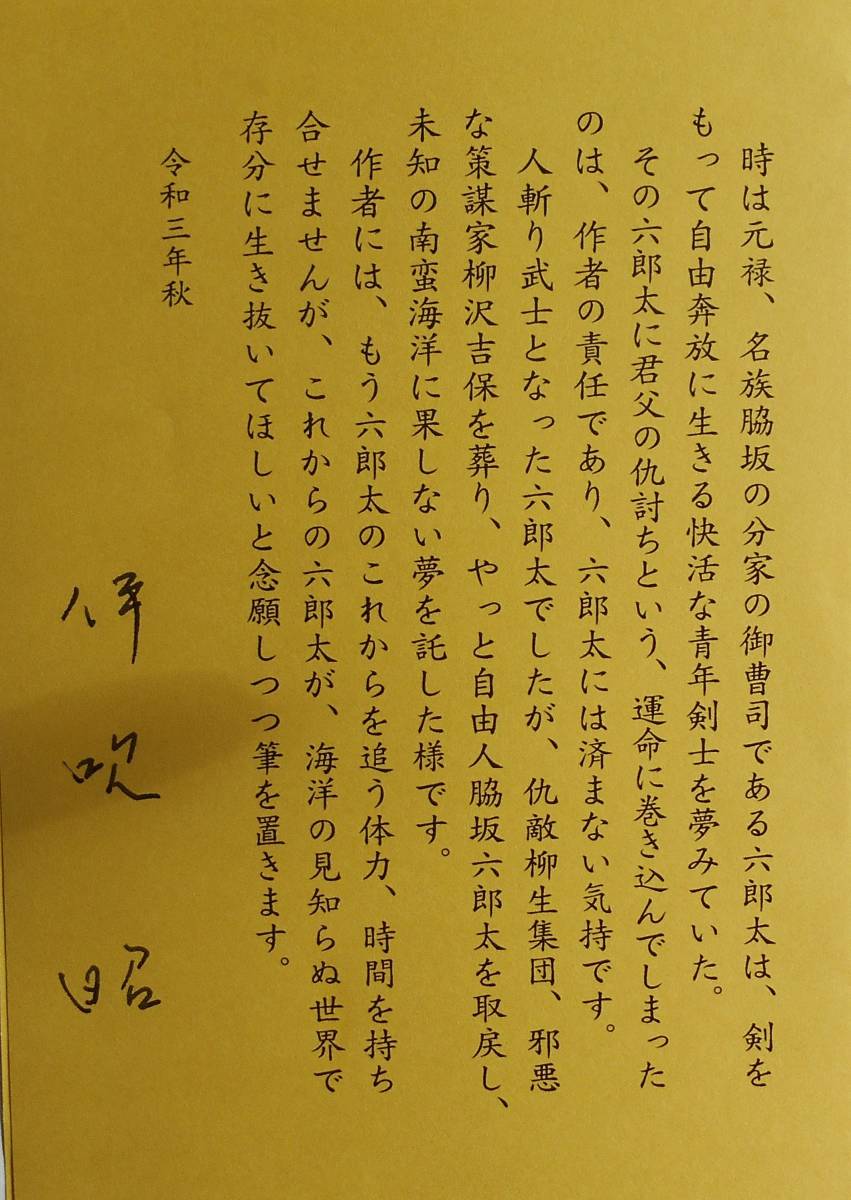 時は元禄、名族脇坂の分家の御曹司である六郎太は、剣を
もって自由奔放に生きる快活な青年剣士を夢みていた。
その六郎太に君父の仇討ちという、運命に巻き込んでしまった
のは、作者の責任であり、六郎太には済まない気持です。
人斬り武士となった六郎太でしたが、仇敵柳生集団、邪悪
な策謀家柳沢吉保を葬り、やっと自由人脇坂六郎太を取戻し、
未知の南蛮海洋に果しない夢を託した様です。
作者には、もう六郎太のこれからを追う体力、時間を持ち
合せませんが、これからの六郎太が、海洋の見知らぬ世界で
存分に生き抜いてほしいと念願しつつ筆を置きます。
令和三年秋
伊吹昭